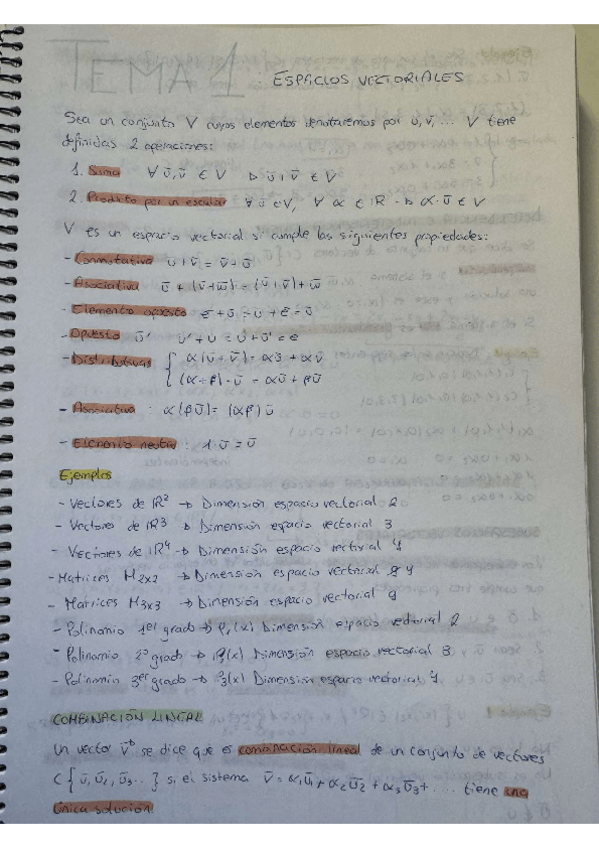 TEMA 1: ESPACIOS VECTORIALES
Sea un conjunto V cuyos elementos denotaremos por ū, v̄, ... V tiene
definidas 2 operaciones:
1. Suma ∀ ū, v̄ ∈ V → ū + v̄ ∈ V
2. Producto por un escalar ∀ ū ∈ V, ∀ α ∈ ℝ → α · ū ∈ V
V es un espacio vectorial si cumple las siguientes propiedades:
- Conmutativa ū + v̄ = v̄ + ū
- Asociativa ū + (v̄ + w̄) = (ū + v̄) + w̄
- Elemento opuesto ē + ū = ū + ē = ū
- Opuesto ū' ū' + ū = ū + ū' = ē
- Distributivas { α(ū + v̄) = αū + αv̄
(α + β) · ū = αū + βū
- Asociativa: α(βū) = (αβ)ū
- Elemento neutro: 1 · ū = ū
Ejemplos
- Vectores de ℝ² → Dimensión espacio vectorial 2
- Vectores de ℝ³ → Dimensión espacio vectorial 3
- Vectores de ℝ⁴ → Dimensión espacio vectorial 4
- Matrices M2x2 → Dimensión espacio vectorial 4
- Matrices M3x3 → Dimensión espacio vectorial 9
- Polinomio 1er grado → P₁(x) Dimensión espacio vectorial 2
- Polinomio 2º grado → P₂(x) Dimensión espacio vectorial 3
- Polinomio 3er grado → P₃(x) Dimensión espacio vectorial 4
COMBINACIÓN LINEAL
Un vector v̄ se dice que es combinación lineal de un conjunto de vectores
C { ū₁, ū₂, ū₃ ... } si el sistema v̄ = α₁ū₁ + α₂ū₂ + α₃ū₃ + .... tiene una
única solución